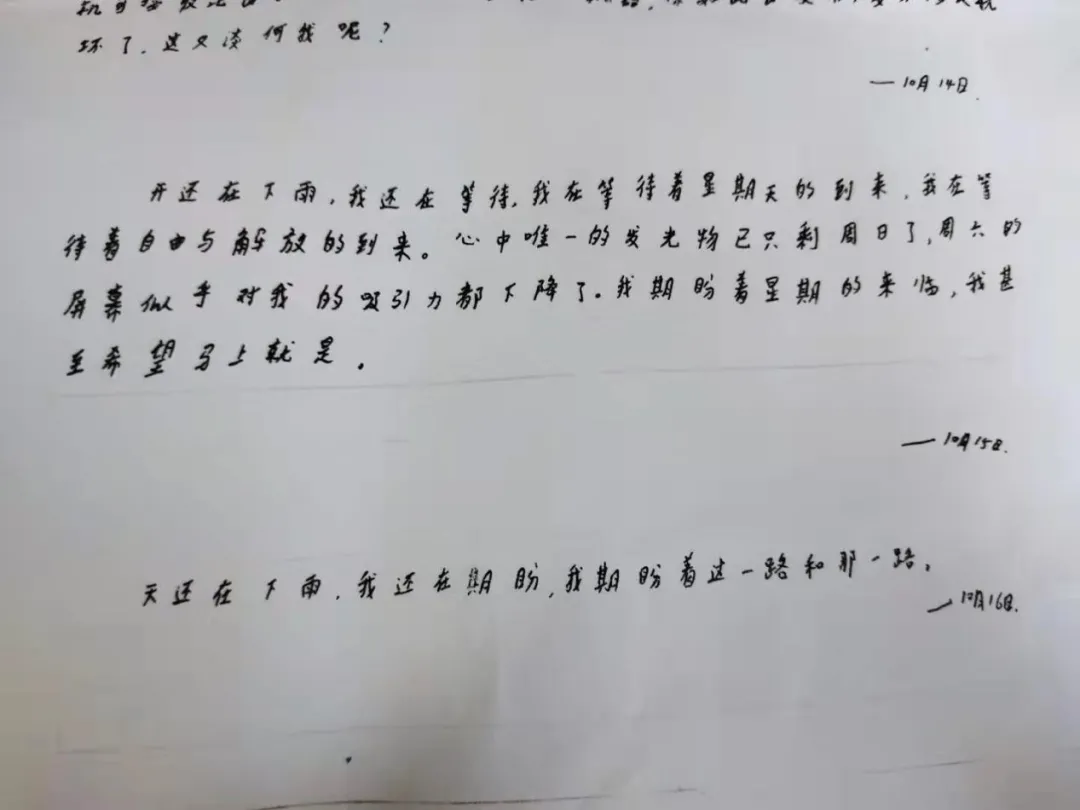 坏了，这又该何我呢？
—10月14日.
开还在下雨，我还在等待，我在等待着星期天的到来，我在等
待着自由与解放的到来。心中唯一的发光物已只剩周日了，周六的
屏幕似乎对我的吸引力都下降了。我期盼着星期的来临，我甚
至希望马上就是。
—10月15日.
天还在下雨，我还在期盼，我期盼着这一路和那一路。
—10月16日.